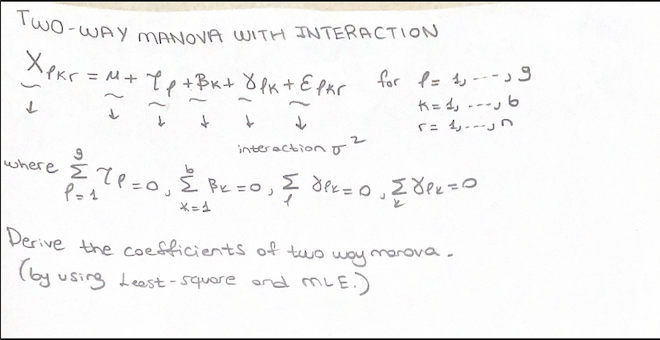 TWO-WAY MANOVA WITH INTERACTION
X̰ℓkr = μ̰ + τ̰ℓ + β̰k + γ̰ℓk + ε̰ℓkr for ℓ = 1, ---, g
k = 1, ---, b
r = 1, ---, n
↓ ↓ ↓ ↓ ↓ ↓
interaction σ²
where ∑_{ℓ=1}^{g} τℓ = 0, ∑_{k=1}^{b} βk = 0, ∑_{ℓ} γℓk = 0, ∑_{k} γℓk = 0
Derive the coefficients of two way manova.
(by using Least-square and MLE.)